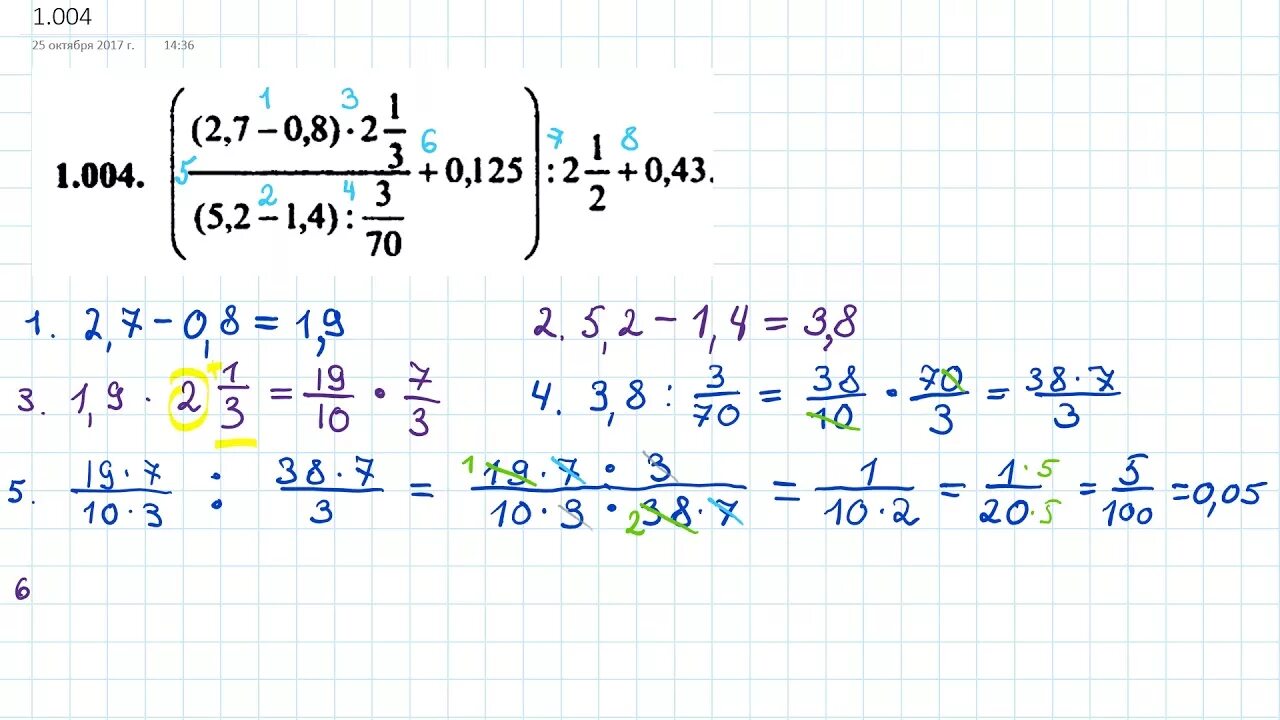 1.004
25 октября 2017 г. 14:36
1.004. ( ((2,7 – 0,8) · 2 1/3) / ((5,2 – 1,4) : 3/70) + 0,125 ) : 2 1/2 + 0,43.
1 3 6 7 8 5 2 4
1. 2,7 – 0,8 = 1,9 2. 5,2 – 1,4 = 3,8
3. 1,9 · 2 + 1/3 = 19/10 · 7/3 4. 3,8 : 3/70 = 38/10 · 70/3 = 38·7/3
5. 19·7/10·3 : 38·7/3 = 1 19·7 · 3/10·3 · 2 38·7 = 1/10·2 = 1·5/20·5 = 5/100 = 0,05
6